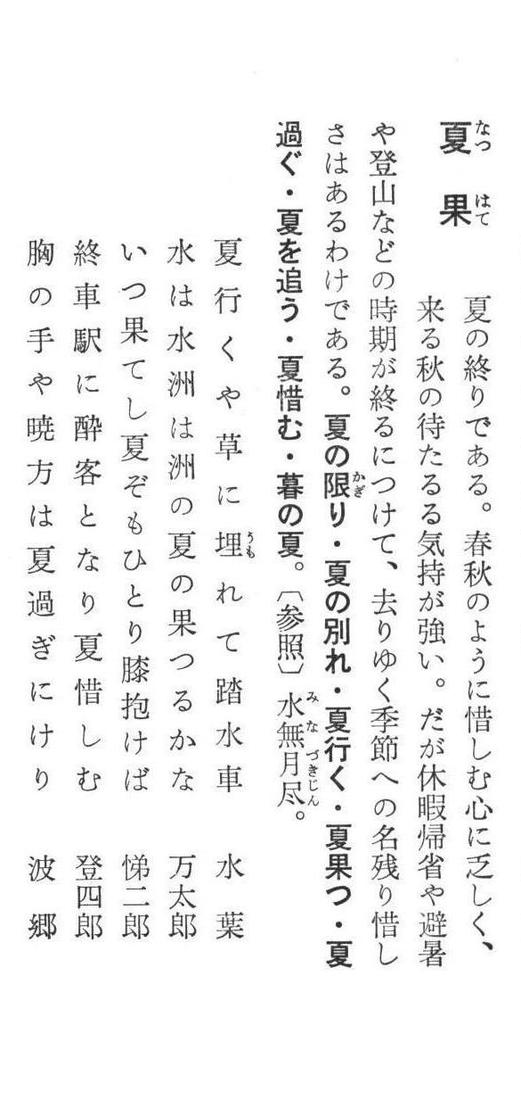 夏果
なつはて
夏の終りである。春秋のように惜しむ心に乏しく、
来る秋の待たるる気持が強い。だが休暇帰省や避暑
や登山などの時期が終るにつけて、去りゆく季節への名残り惜し
さはあるわけである。夏の限り・夏の別れ・夏行く・夏果つ・夏
かぎ
過ぐ・夏を追う・夏惜む・暮の夏。〔参照〕水無月尽。
みなづきじん
夏行くや草に埋れて踏水車 水葉
うも
水は水洲は洲の夏の果つるかな 万太郎
いつ果てし夏ぞもひとり膝抱けば 悌二郎
終車駅に酔客となり夏惜しむ 登四郎
胸の手や暁方は夏過ぎにけり 波郷